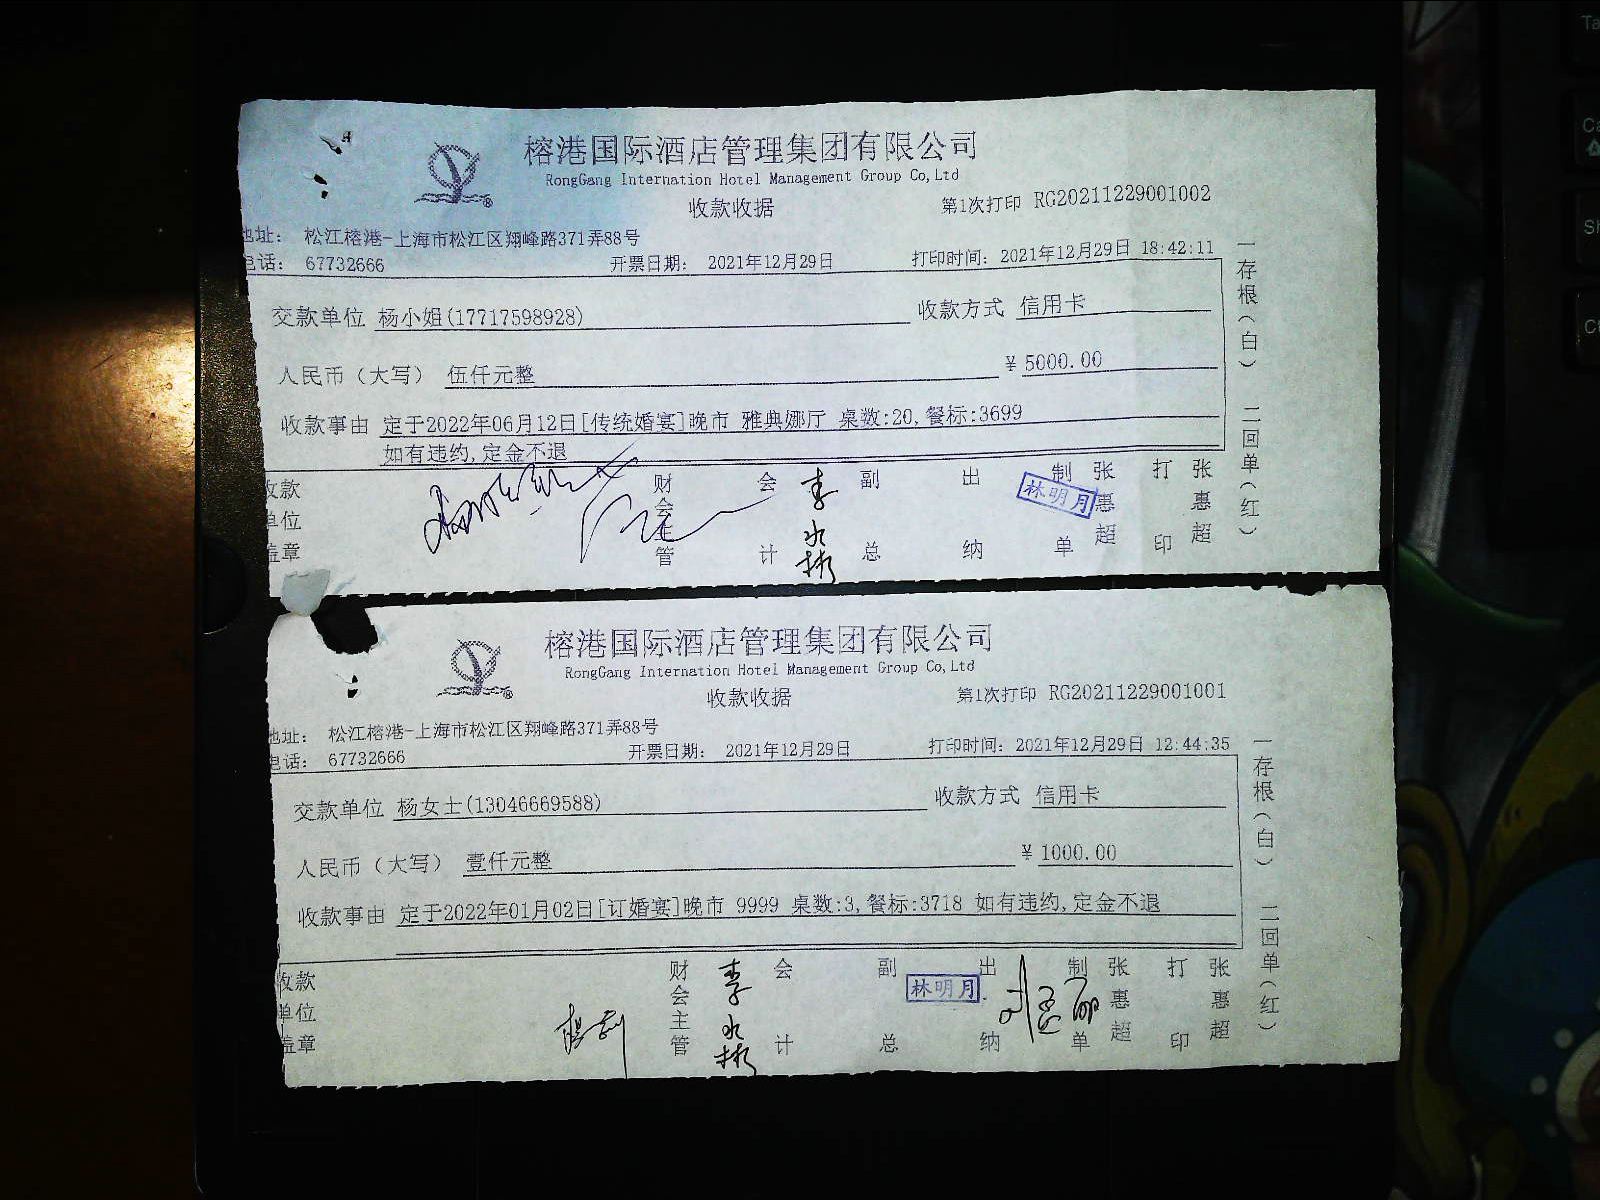 榕港国际酒店管理集团有限公司
RongGang Internation Hotel Management Group Co,Ltd
收款收据
第1次打印 RG20211229001002
地址： 松江榕港-上海市松江区翔峰路371弄88号
电话： 67732666
开票日期： 2021年12月29日
打印时间：2021年12月29日 18:42:11
交款单位 杨小姐(17717598928)
收款方式 信用卡
人民币（大写） 伍仟元整
¥ 5000.00
收款事由 定于2022年06月12日[传统婚宴]晚市 雅典娜厅 桌数:20,餐标:3699
如有违约,定金不退
收款单位盖章
财会主管
会计 李水彬
副总
出纳 林明月
制单 张惠超
打印 张惠超
一存根（白） 二回单（红）
榕港国际酒店管理集团有限公司
RongGang Internation Hotel Management Group Co,Ltd
收款收据
第1次打印 RG20211229001001
地址： 松江榕港-上海市松江区翔峰路371弄88号
电话： 67732666
开票日期： 2021年12月29日
打印时间：2021年12月29日 12:44:35
交款单位 杨女士(13046669588)
收款方式 信用卡
人民币（大写） 壹仟元整
¥ 1000.00
收款事由 定于2022年01月02日[订婚宴]晚市 9999 桌数:3,餐标:3718 如有违约,定金不退
收款单位盖章
财会主管 李水彬
会计
副总 林明月
出纳
制单 张惠超
打印 张惠超
一存根（白） 二回单（红）